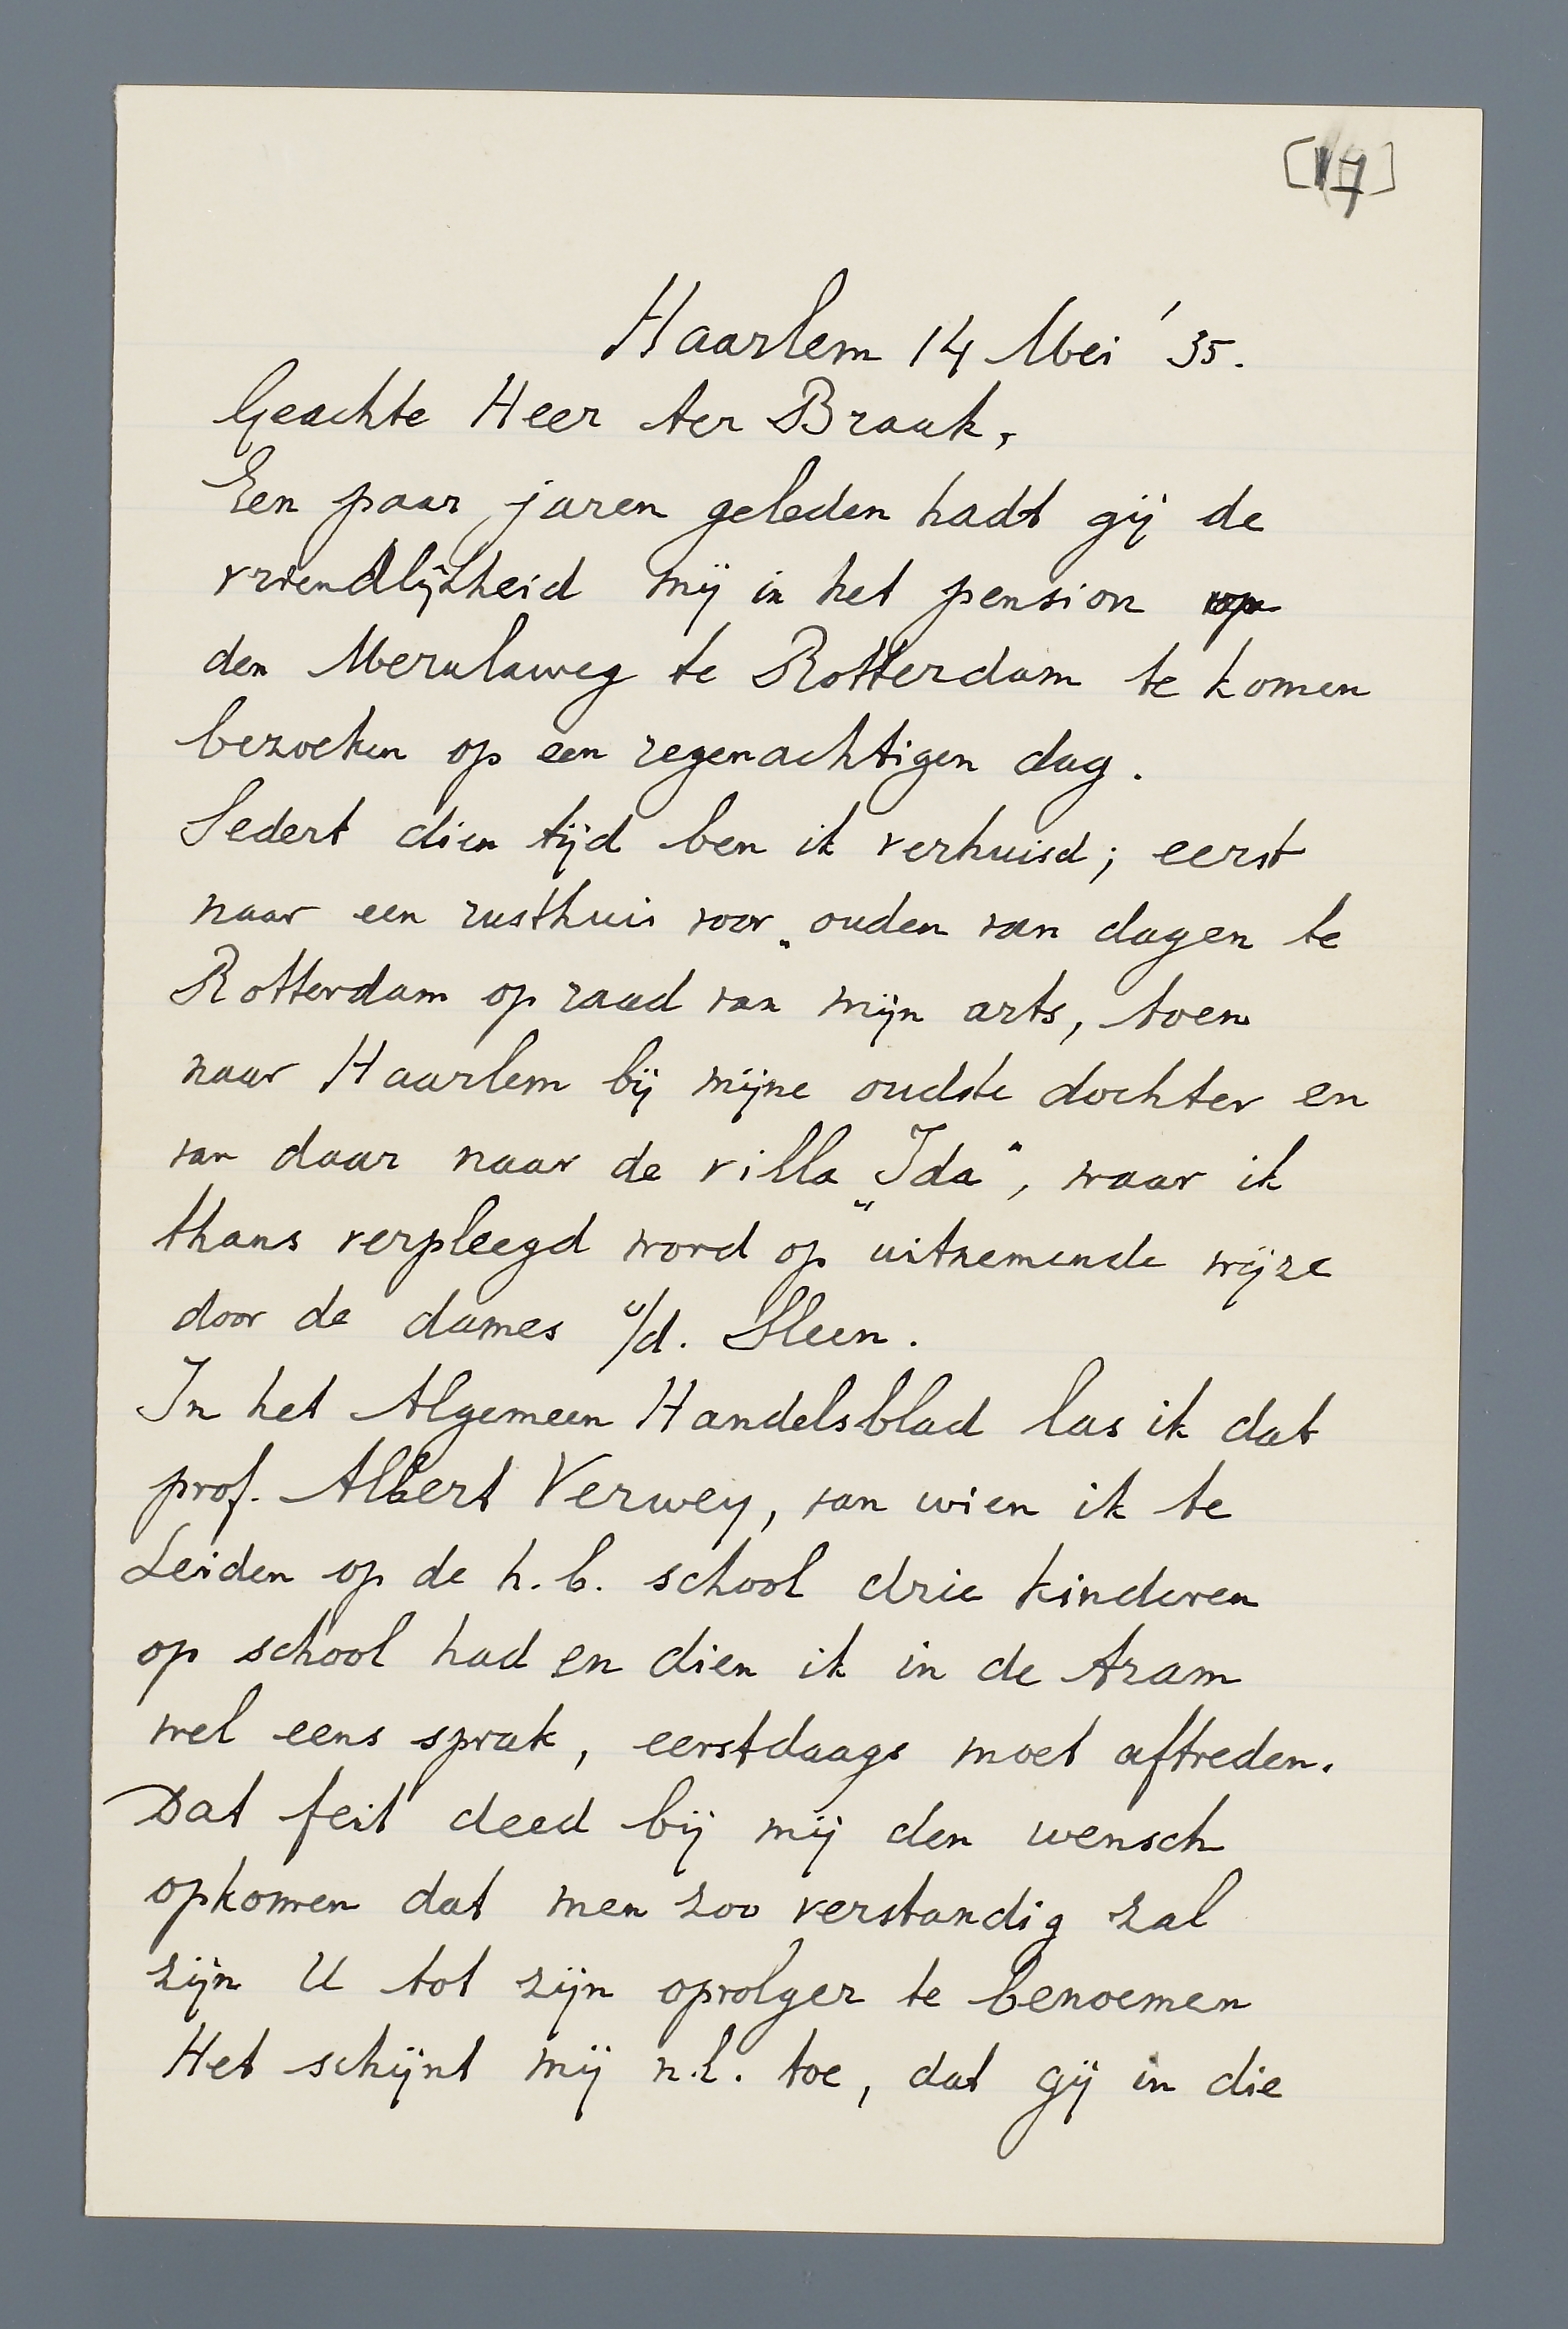 [17]
Haarlem 14 Mei '35.
Geachte Heer ter Braak,
Een paar jaren geleden hadt gij de
vriendlijkheid mij in het pension op
den Merulaweg te Rotterdam te komen
bezoeken op een regenachtigen dag.
Sedert dien tijd ben ik verhuisd; eerst
naar een rusthuis voor „ouden van dagen te
Rotterdam op raad van mijn arts, toen
naar Haarlem bij mijne oudste dochter en
van daar naar de villa „Ida", waar ik
thans verpleegd word op uitnemende wijze
door de dames v/d. Steen.
In het Algemeen Handelsblad las ik dat
prof. Albert Verwey, van wien ik te
Leiden op de h.b. school drie kinderen
op school had en dien ik in de tram
wel eens sprak, eerstdaags moet aftreden.
Dat feit deed bij mij den wensch
opkomen dat men zoo verstandig zal
zijn U tot zijn opvolger te benoemen
Het schijnt mij n.l. toe, dat gij in die